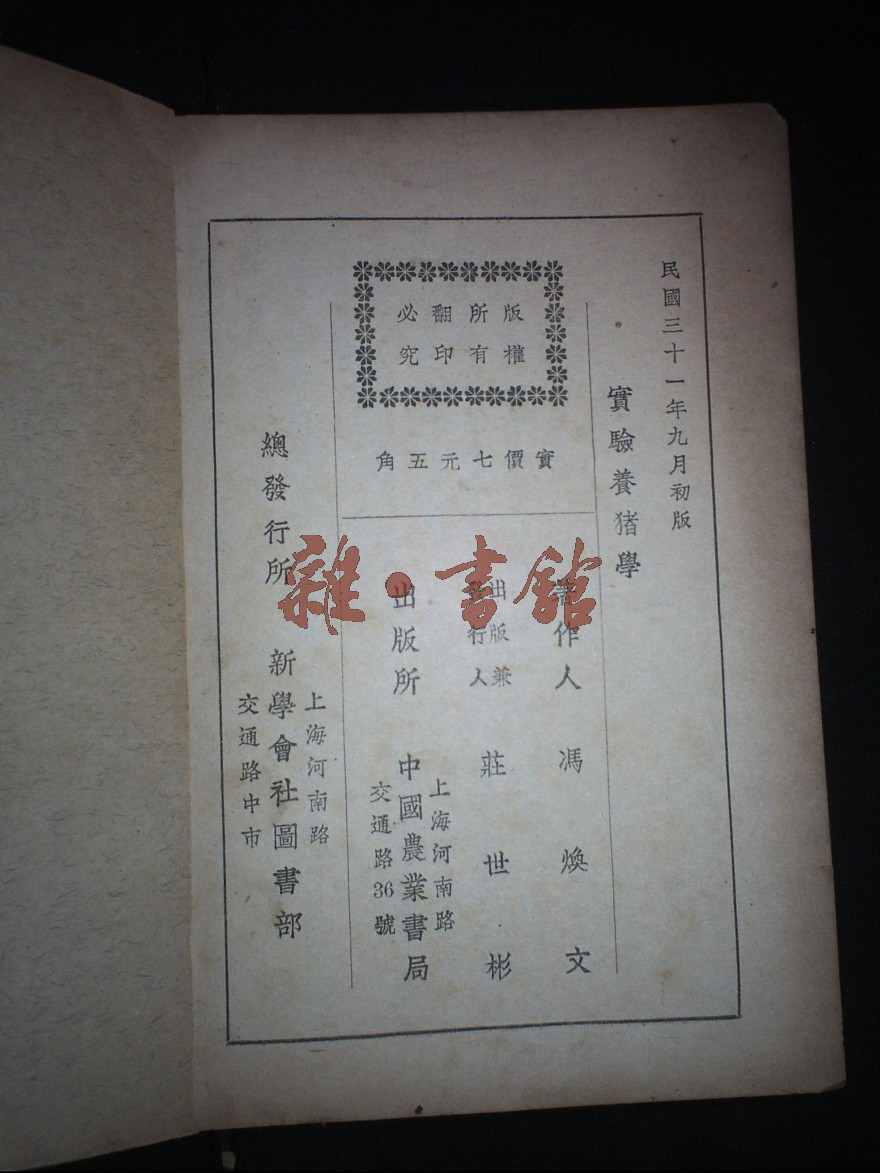 民國三十一年九月初版
實驗養猪學
版權
所有
翻印
必究
實價七元五角
著作人 馮煥文
出版兼
發行人 莊世彬
出版所 中國農業書局
上海河南路
交通路36號
總發行所 新學會社圖書部
上海河南路
交通路中市
雜·書館